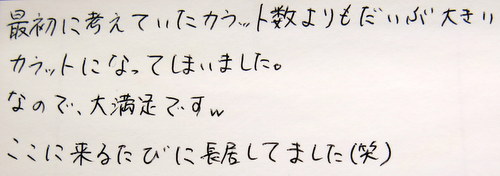 最初に考えていたカラット数よりもだいぶ大きい
カラットになってしまいました。
なので、大満足ですw
ここに来るたびに長居してました(笑)